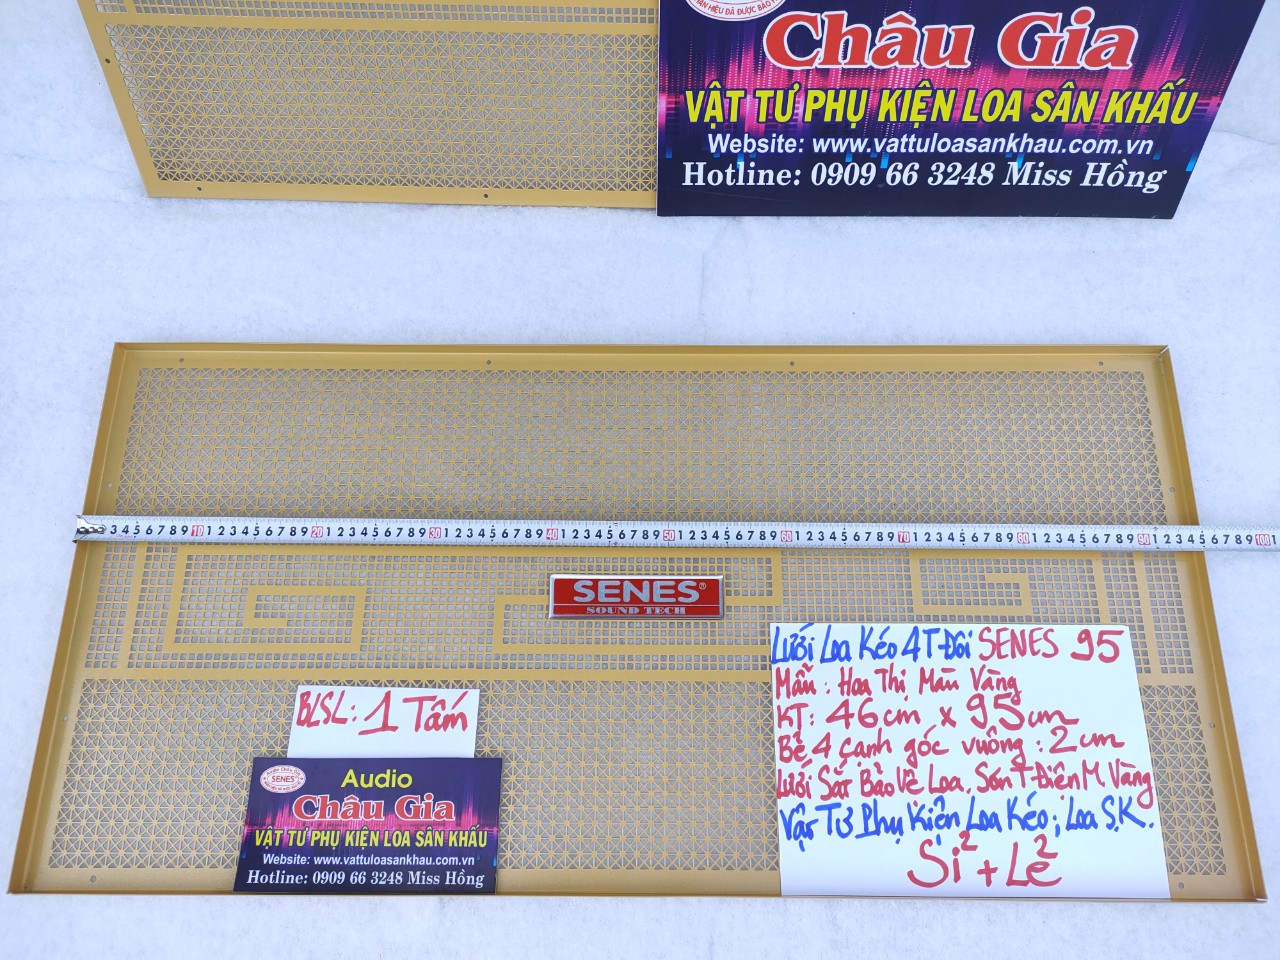 Châu Gia
VẬT TƯ PHỤ KIỆN LOA SÂN KHẤU
Website: www.vattuloasankhau.com.vn
Hotline: 0909 66 3248 Miss Hồng
3 4 5 6 7 8 9 10 1 2 3 4 5 6 7 8 9 20 1 2 3 4 5 6 7 8 9 30 1 2 3 4 5 6 7 8 9 40 1 2 3 4 5 6 7 8 9 50 1 2 3 4 5 6 7 8 9 60 1 2 3 4 5 6 7 8 9 70 1 2 3 4 5 6 7 8 9 80 1 2 3 4 5 6 7 8 9 90 1 2 3 4 5 6 7 8 9 100 1
SENES®
SOUND TECH
Lưới Loa Kéo 4T Đôi SENES 95
Mẫu: Hoa Thị Màu Vàng
KT: 46cm x 95cm
Bẻ 4 cạnh góc vuông: 2cm
Lưới Sắt Bảo Vệ Loa, Sơn T Điện M. Vàng
Vật Tư Phụ Kiện Loa Kéo; Loa S.K.
Sỉ² + Lẻ²
BLSL: 1 Tấm
SENES
Audio
Châu Gia
VẬT TƯ PHỤ KIỆN LOA SÂN KHẤU
Website: www.vattuloasankhau.com.vn
Hotline: 0909 66 3248 Miss Hồng